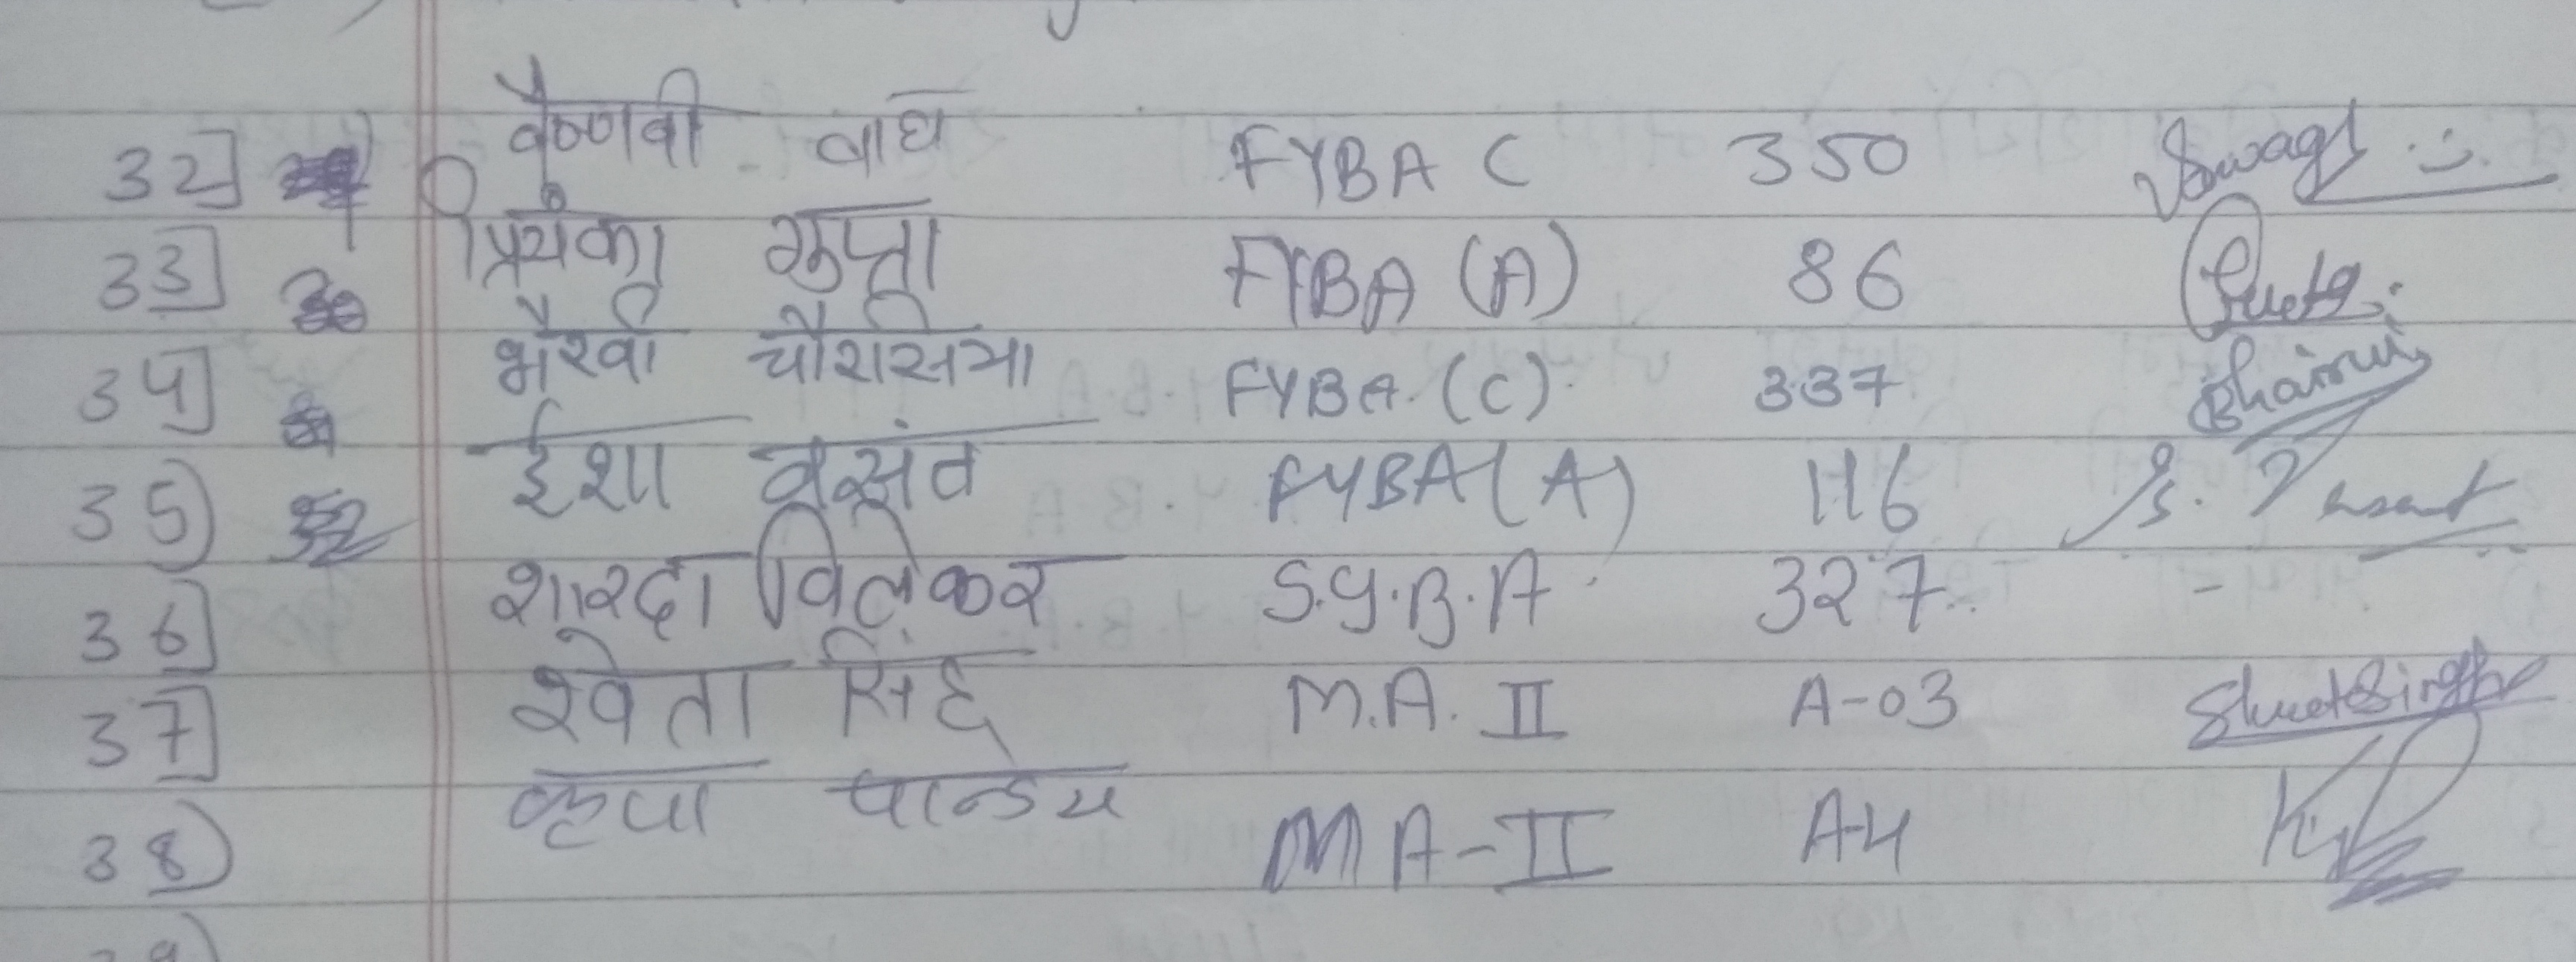 32] वैष्णवी वाघ FYBA C 350
33] प्रियंका गुप्ता FYBA (A) 86
34] भैरवी चौरासिया FYBA (C) 337 Bhairavi
35) ईशा वसंत FYBA (A) 116 Is. Vasant
36] शारदा विलेकर S.Y.B.A 327 -
37] श्वेता सिंह M.A. II A-03 ShwetSingh
38) कृपा पान्डेय MA-II A-4
39)